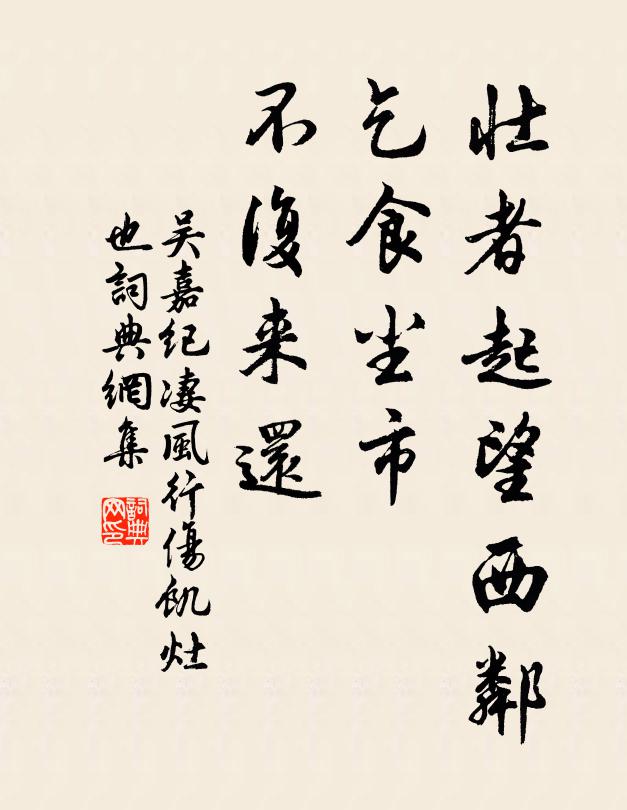 壯者起望西鄰
乞食尘市
不復来還
吴嘉纪凄風行傷飢灶
也詞典網集
詞典网印